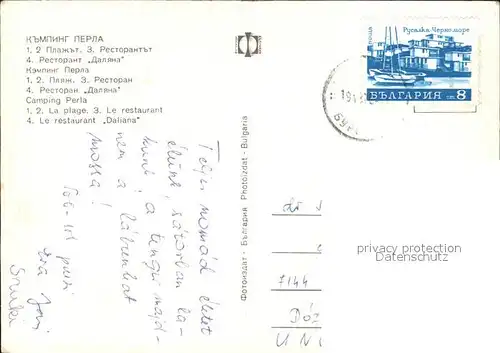 КЪМПИНГ ПЕРЛА
1, 2 Плажът. 3. Ресторантът
4. Ресторант "Даляна"
Кэмпинг Перла
1, 2. Пляж. 3. Ресторан
4. Ресторан "Даляна"
Camping Perla
1, 2. La plage. 3. Le restaurant
4. Le restaurant "Daliana"
Фотоиздат - България Photoizdat - Bulgaria
поща Русалка Черно море
БЪЛГАРИЯ 8
Teljes nomád életet
élünk, sátorban la-
kunk! a tenger majd-
nem a lábunkat
mossa!
puszi
7144
privacy protection
watermark